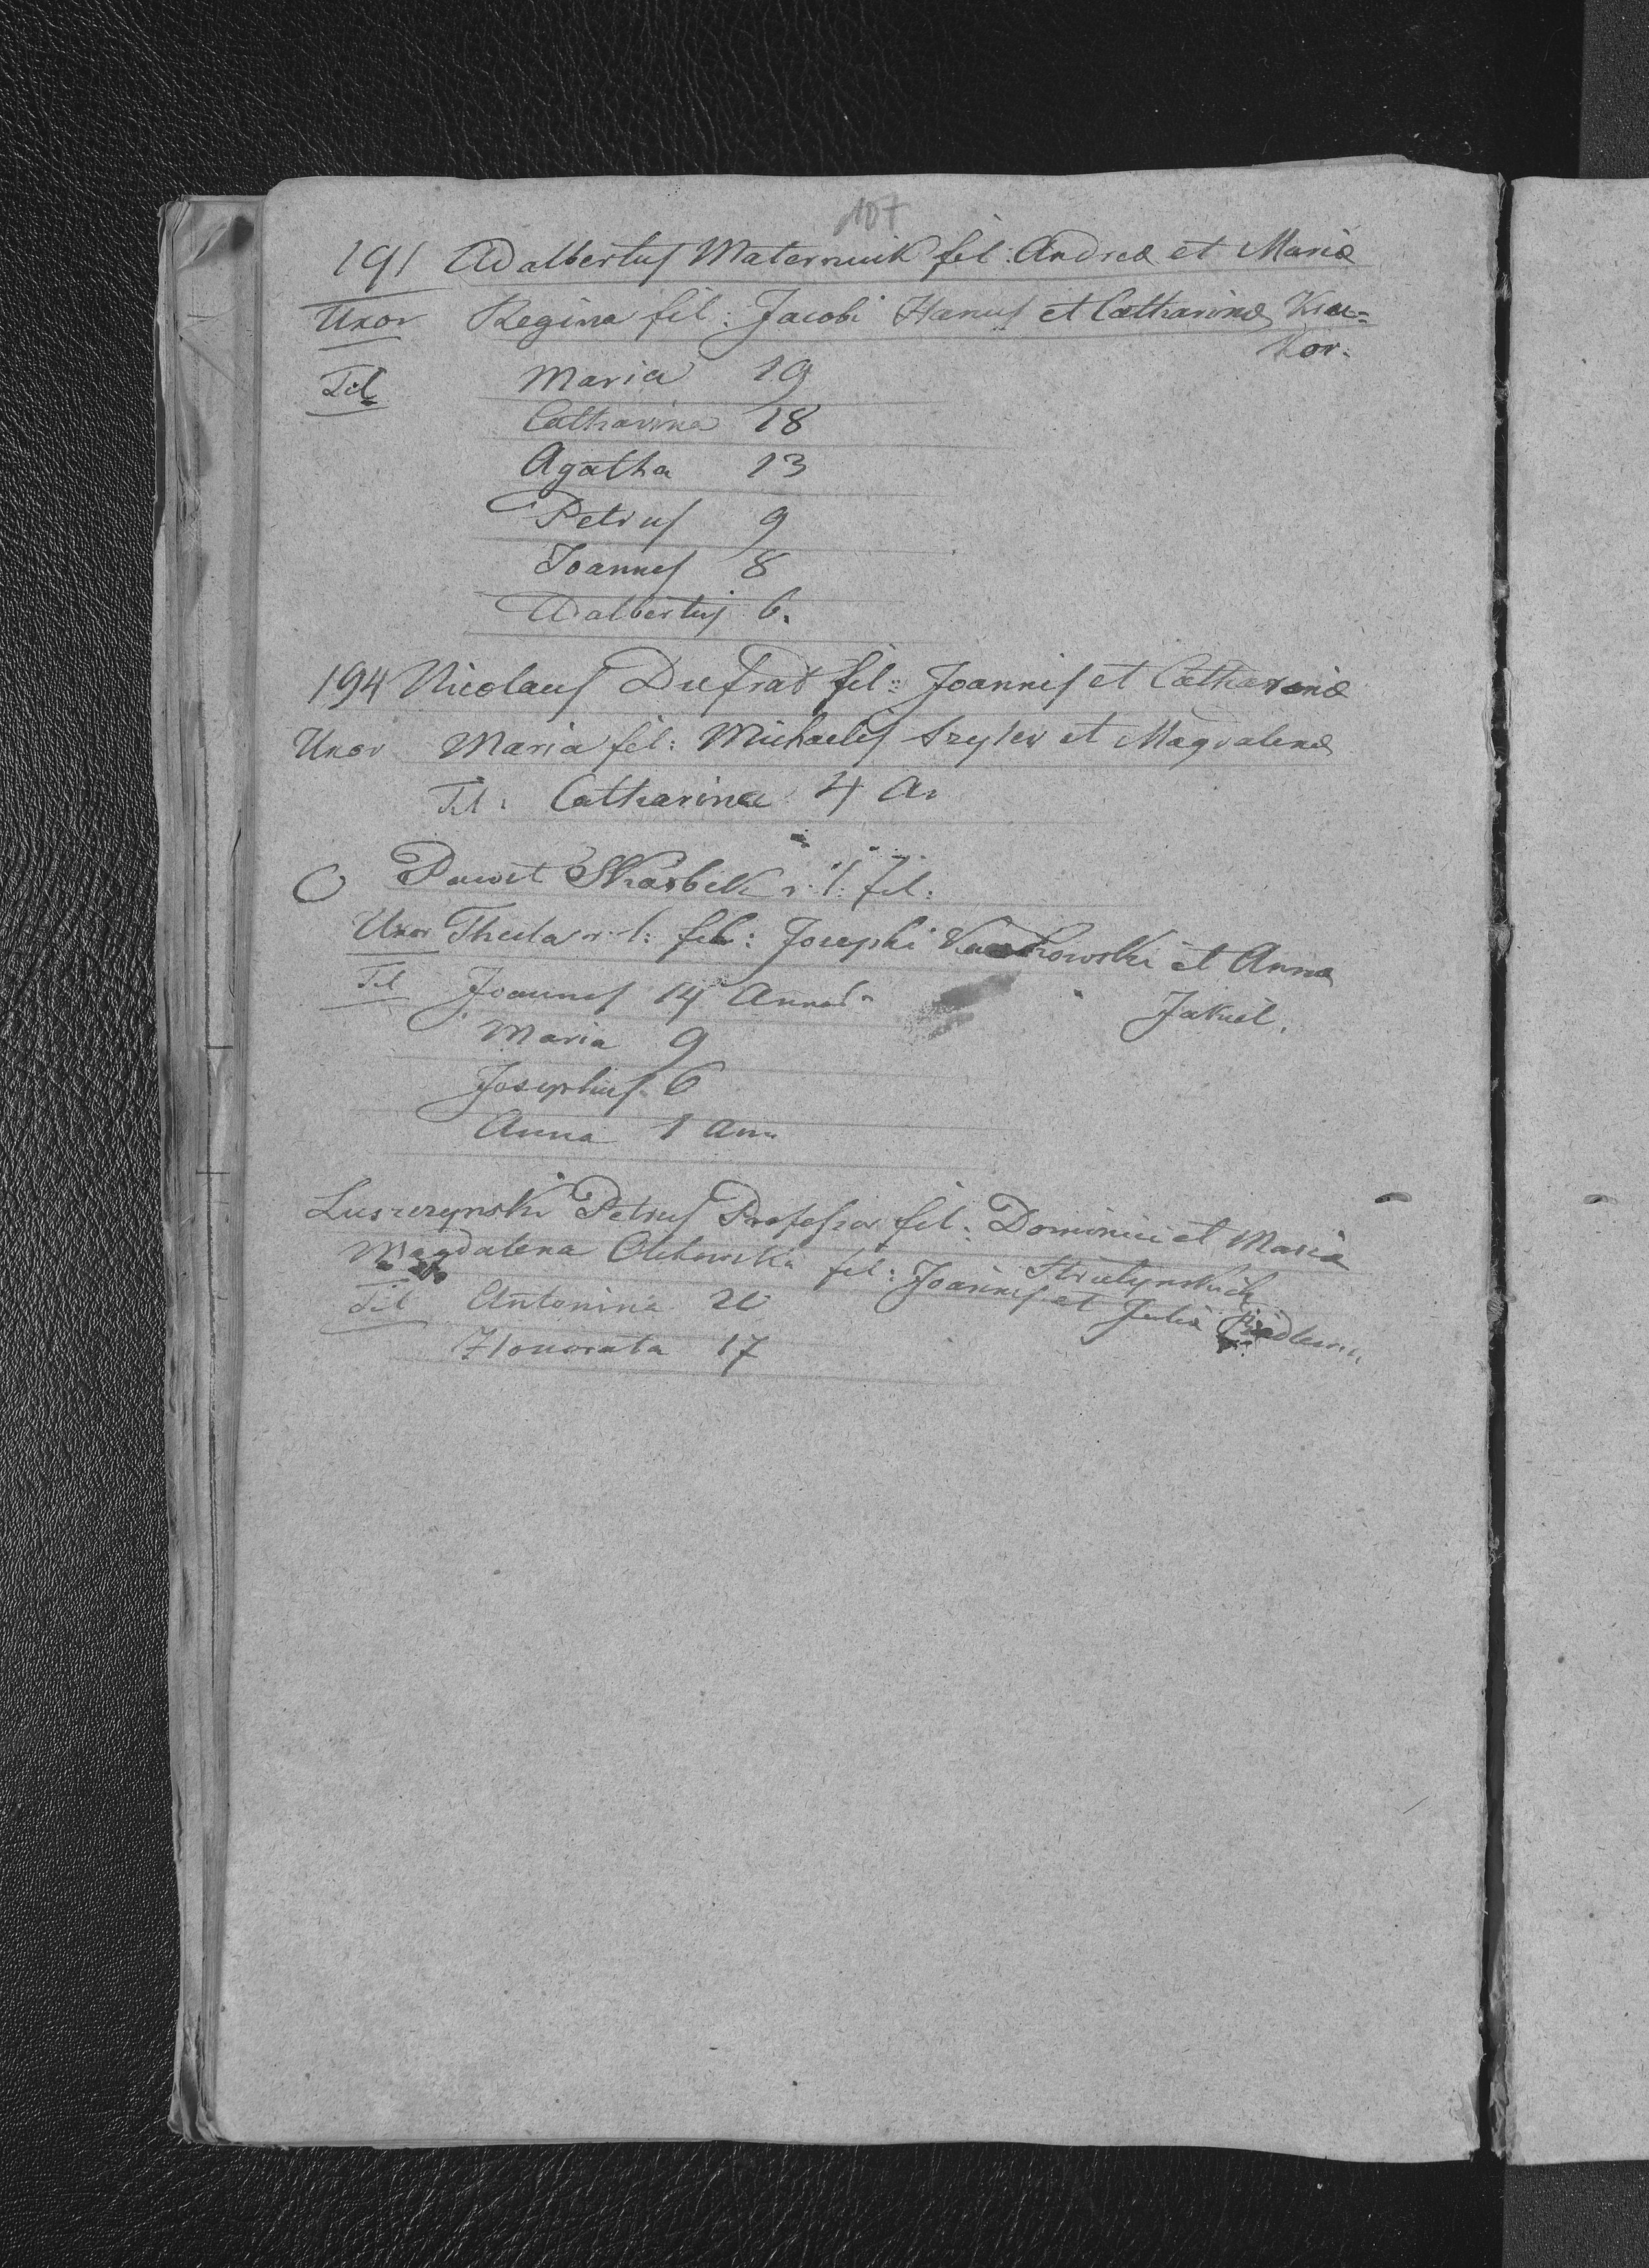 107
191 Adalbertus Maternuik fil: Andreæ et Mariæ
Uxor Regina fil: Jacobi Hanus et Catharinæ Kra=
kor.
Fil Maria 19
Catharina 18
Agatha 13
Petrus 9
Joannes 8
Adalbertus 6.
194 Nicolaus Dufrat fil: Joannis et Catharinæ
Uxor Maria fil: Michaelis Szyler et Magdalenæ
Fil: Catharina 4 a.
Paweł Skarbek r. l. fil:
Uxor Thecla r. l: fil: Josephi et Anna
Jakiel.
Fil Joannes 14 Annor
Maria 9
Josephus 6
Anna 1 ann.
Luszczynski Petrus Professor fil: Dominici et Maria
Strutynskich
Magdalena Olchowska fil: Joannis et Julia
Fil Antonina 20
Honorata 17